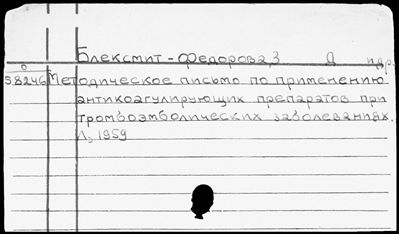 Блексмит-Федорова, З Д и др.
0
58246 Методическое письмо по применению
антикоагулирующих препаратов при
тромбоэмболических заболеваниях.
Л, 1959